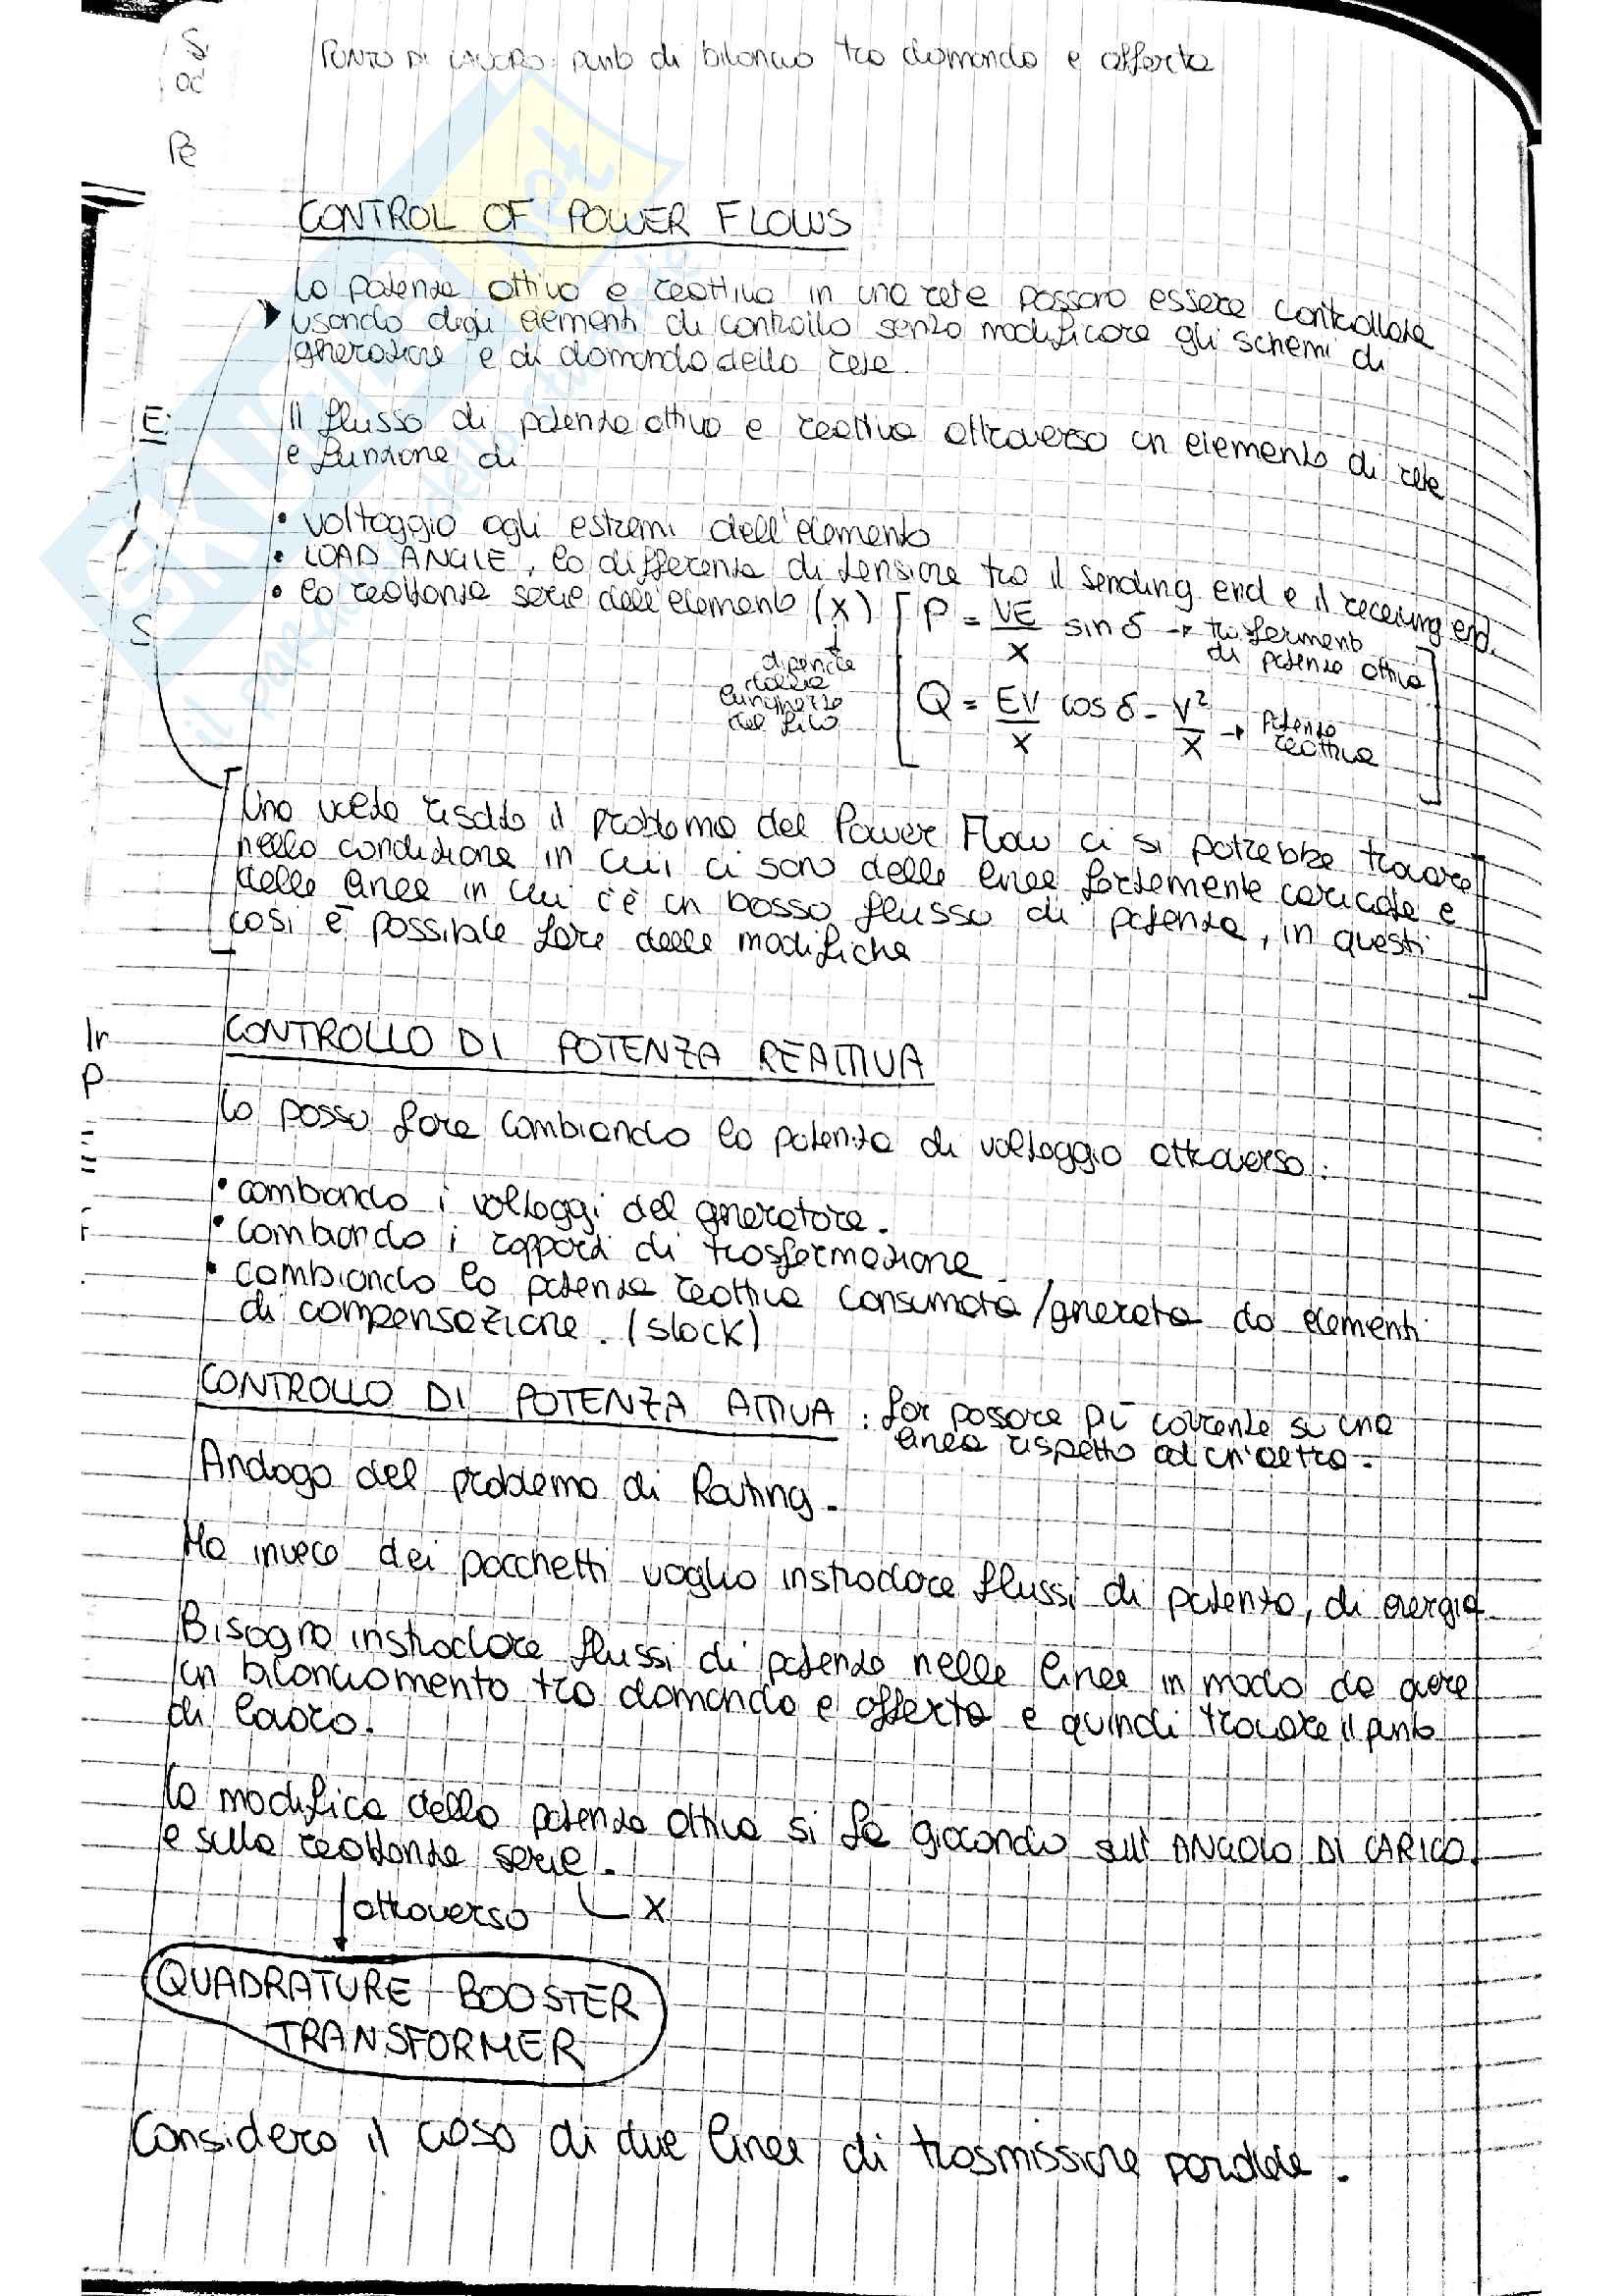 PUNTO DI LAVORO: punto di bilancio tra domanda e offerta
CONTROL OF POWER FLOWS
La potenza attiva e reattiva in una rete possono essere controllate
usando degli elementi di controllo senza modificare gli schemi di
gnerazione e di domanda della rete.
Il flusso di potenza attiva e reattiva attraverso un elemento di rete
e funzione di
• voltaggio agli estremi dell'elemento
• LOAD ANGLE, la differenza di tensione tra il sending end e il receiving end.
• la reattanza serie dell'elemento (X)
dipende
dalla
lunghezza
del filo
P = VE/X sin δ → trasferimento
di potenza attiva
Q = EV/X cos δ - V²/X → potenza
reattiva
Una volta risolto il problema del Power Flow ci si potrebbe trovare
nella condizione in cui ci sono delle linee fortemente caricate e
delle linee in cui c'è un basso flusso di potenza, in questi
casi è possibile fare delle modifiche
CONTROLLO DI POTENZA REATTIVA
Lo posso fare cambiando la potenza di voltaggio attraverso:
• cambiando i voltaggi del gneratore.
• cambiando i rapporti di trasformazione
• cambiando la potenza reattiva consumata/gnerata da elementi
di compensazione. (slack)
CONTROLLO DI POTENZA ATTIVA: far passare più corrente su una
linea rispetto ad un'altra.
Analogo del problema di Routing.
Ma invece dei pacchetti voglio instradare flussi di potenza, di energia
Bisogna instradare flussi di potenza nelle linee in modo da avere
un bilanciamento tra domanda e offerta e quindi trovare il punto
di lavoro.
La modifica della potenza attiva si fa giocando sull'ANGOLO DI CARICO
e sulla reattanza serie.
attraverso X
QUADRATURE BOOSTER
TRANSFORMER
Considero il caso di due linee di trasmissione parallele.